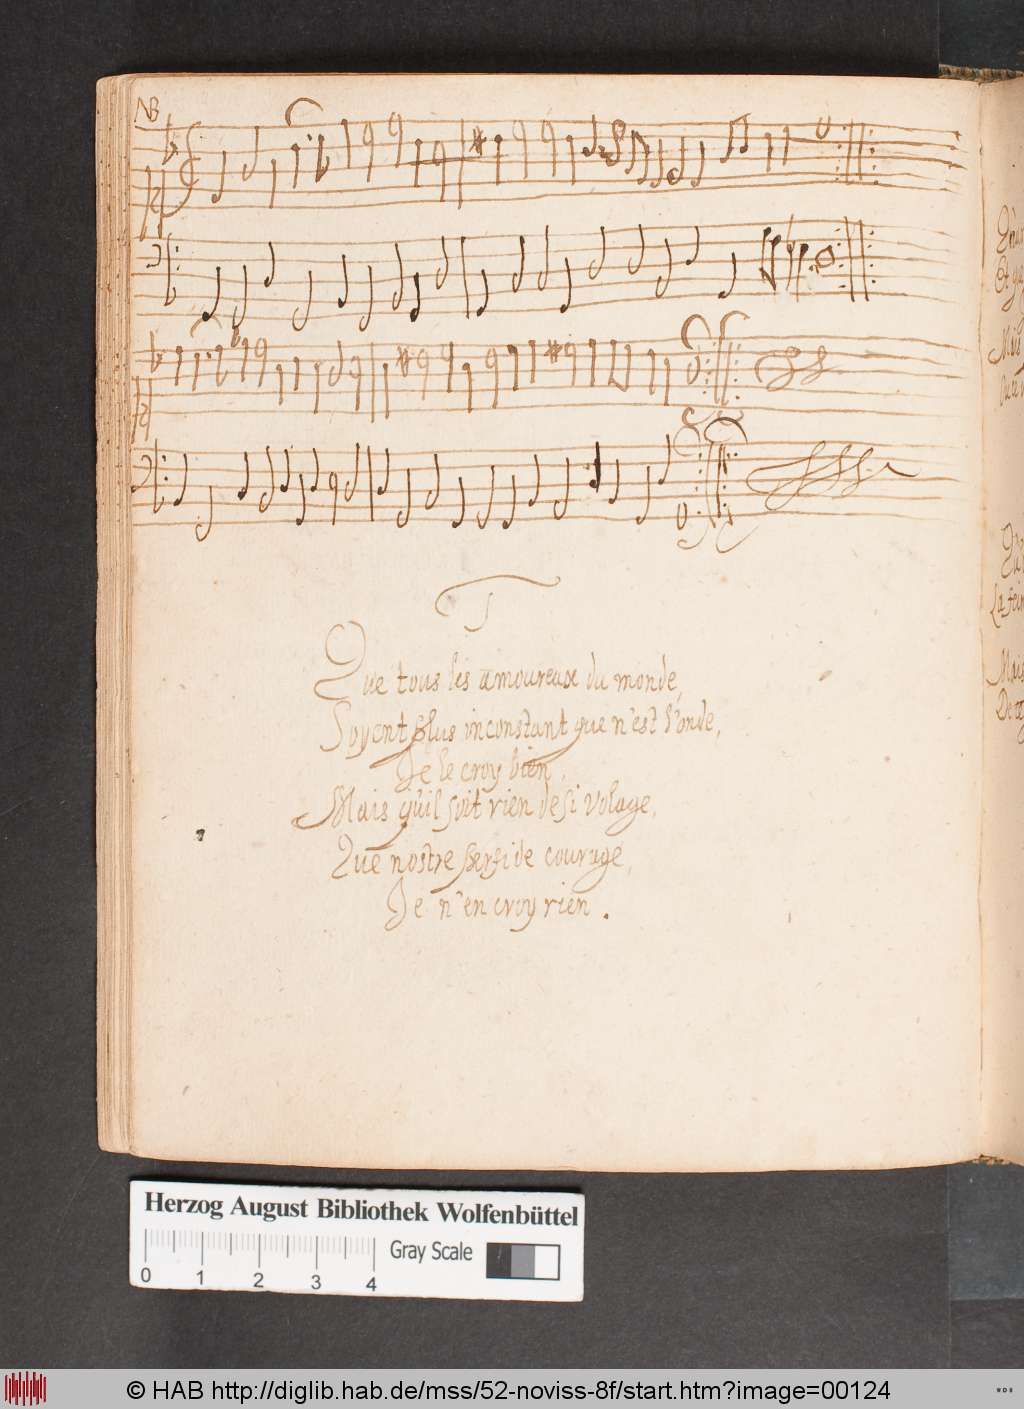 NB
Que tous les amoureux du monde,
Soyent plus inconstant que n'est l'onde,
Je le croy bien,
Mais qu'il soit rien de si volage,
Que nostre perfide courage,
Je n'en croy rien.
Mais
La fein
Mais
Herzog August Bibliothek Wolfenbüttel
Gray Scale
0 1 2 3 4
© HAB http://diglib.hab.de/mss/52-noviss-8f/start.htm?image=00124